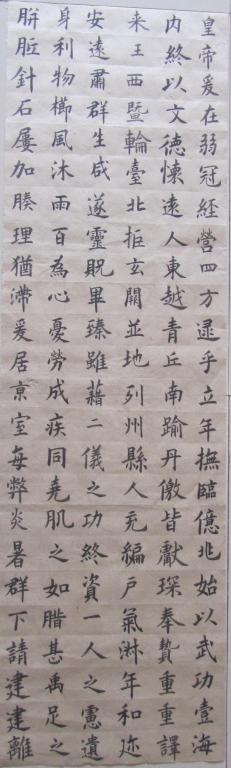 皇帝爰在弱冠経營四方逮乎立年撫臨億兆始以武功壹海
内終以文德懐遠人東越青丘南踰丹儌皆獻琛奉贄重重譯
来王西曁輪臺北拒玄闕並地列州縣人充編戶氣淋年和迩
安遠肅群生咸遂靈貺畢臻雖藉二儀之功終資一人之慮遺
身利物櫛風沐雨百為心憂勞成疾同堯肌之如腊甚禹足之
胼胝針石屢加腠理猶滯爰居京室每弊炎暑群下請建建離